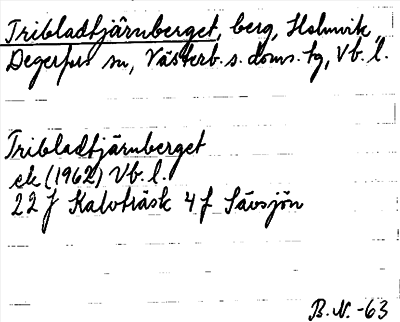 Tribladtjärnberget, berg, Holmvik,
Degerfors sn, Västerb. s. doms. tg, Vb. l.
Tribladtjärnberget
ek (1962) Vb. l.
22 J Kalvträsk 4 f Sävsjön
B. N. -63